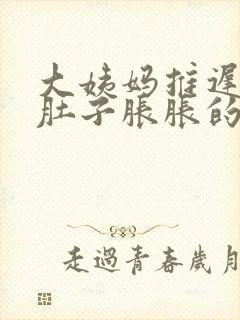 大姨妈推迟
肚子胀胀的
走過青春歲月